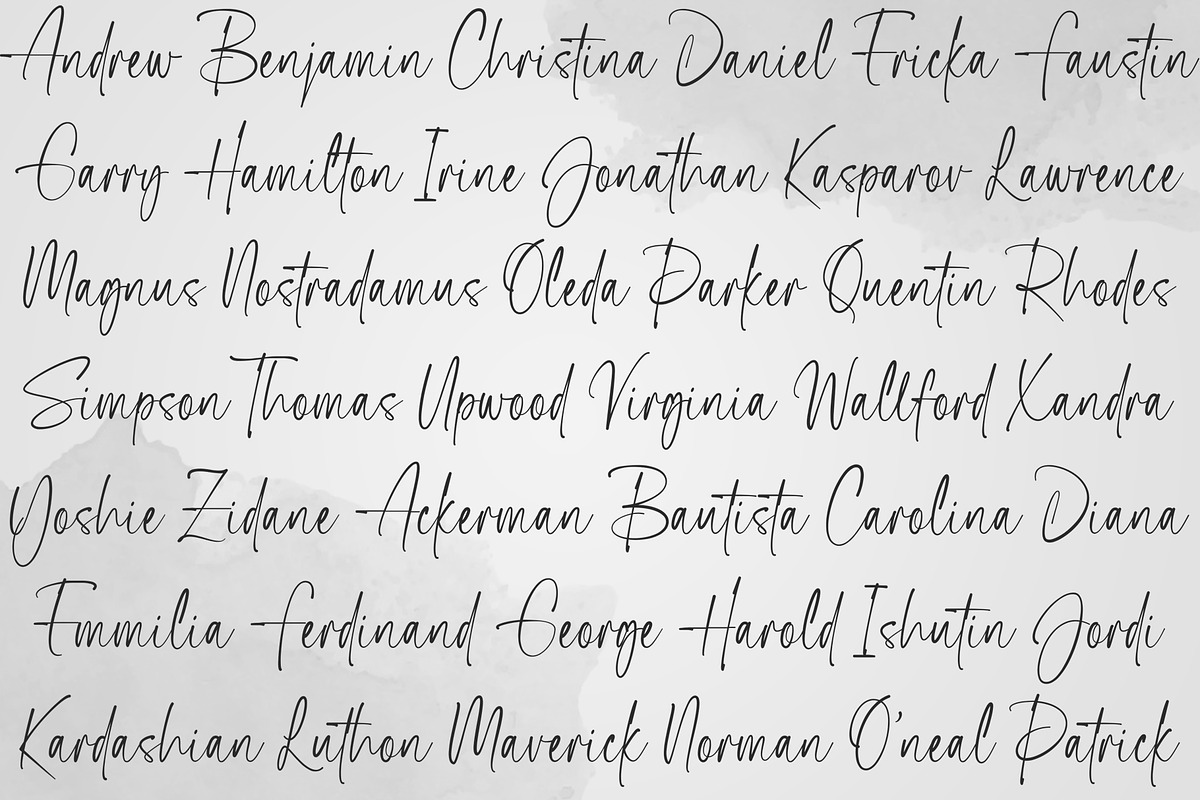 Andrew Benjamin Christina Daniel Ericka Faustin
Garry Hamilton Irine Jonathan Kasparov Lawrence
Magnus Nostradamus Oleda Parker Quentin Rhodes
Simpson Thomas Upwood Virginia Wallford Xandra
Yoshie Zidane Ackerman Bautista Carolina Diana
Emmilia Ferdinand George Harold Ishutin Jordi
Kardashian Luthon Maverick Norman O'neal Patrick